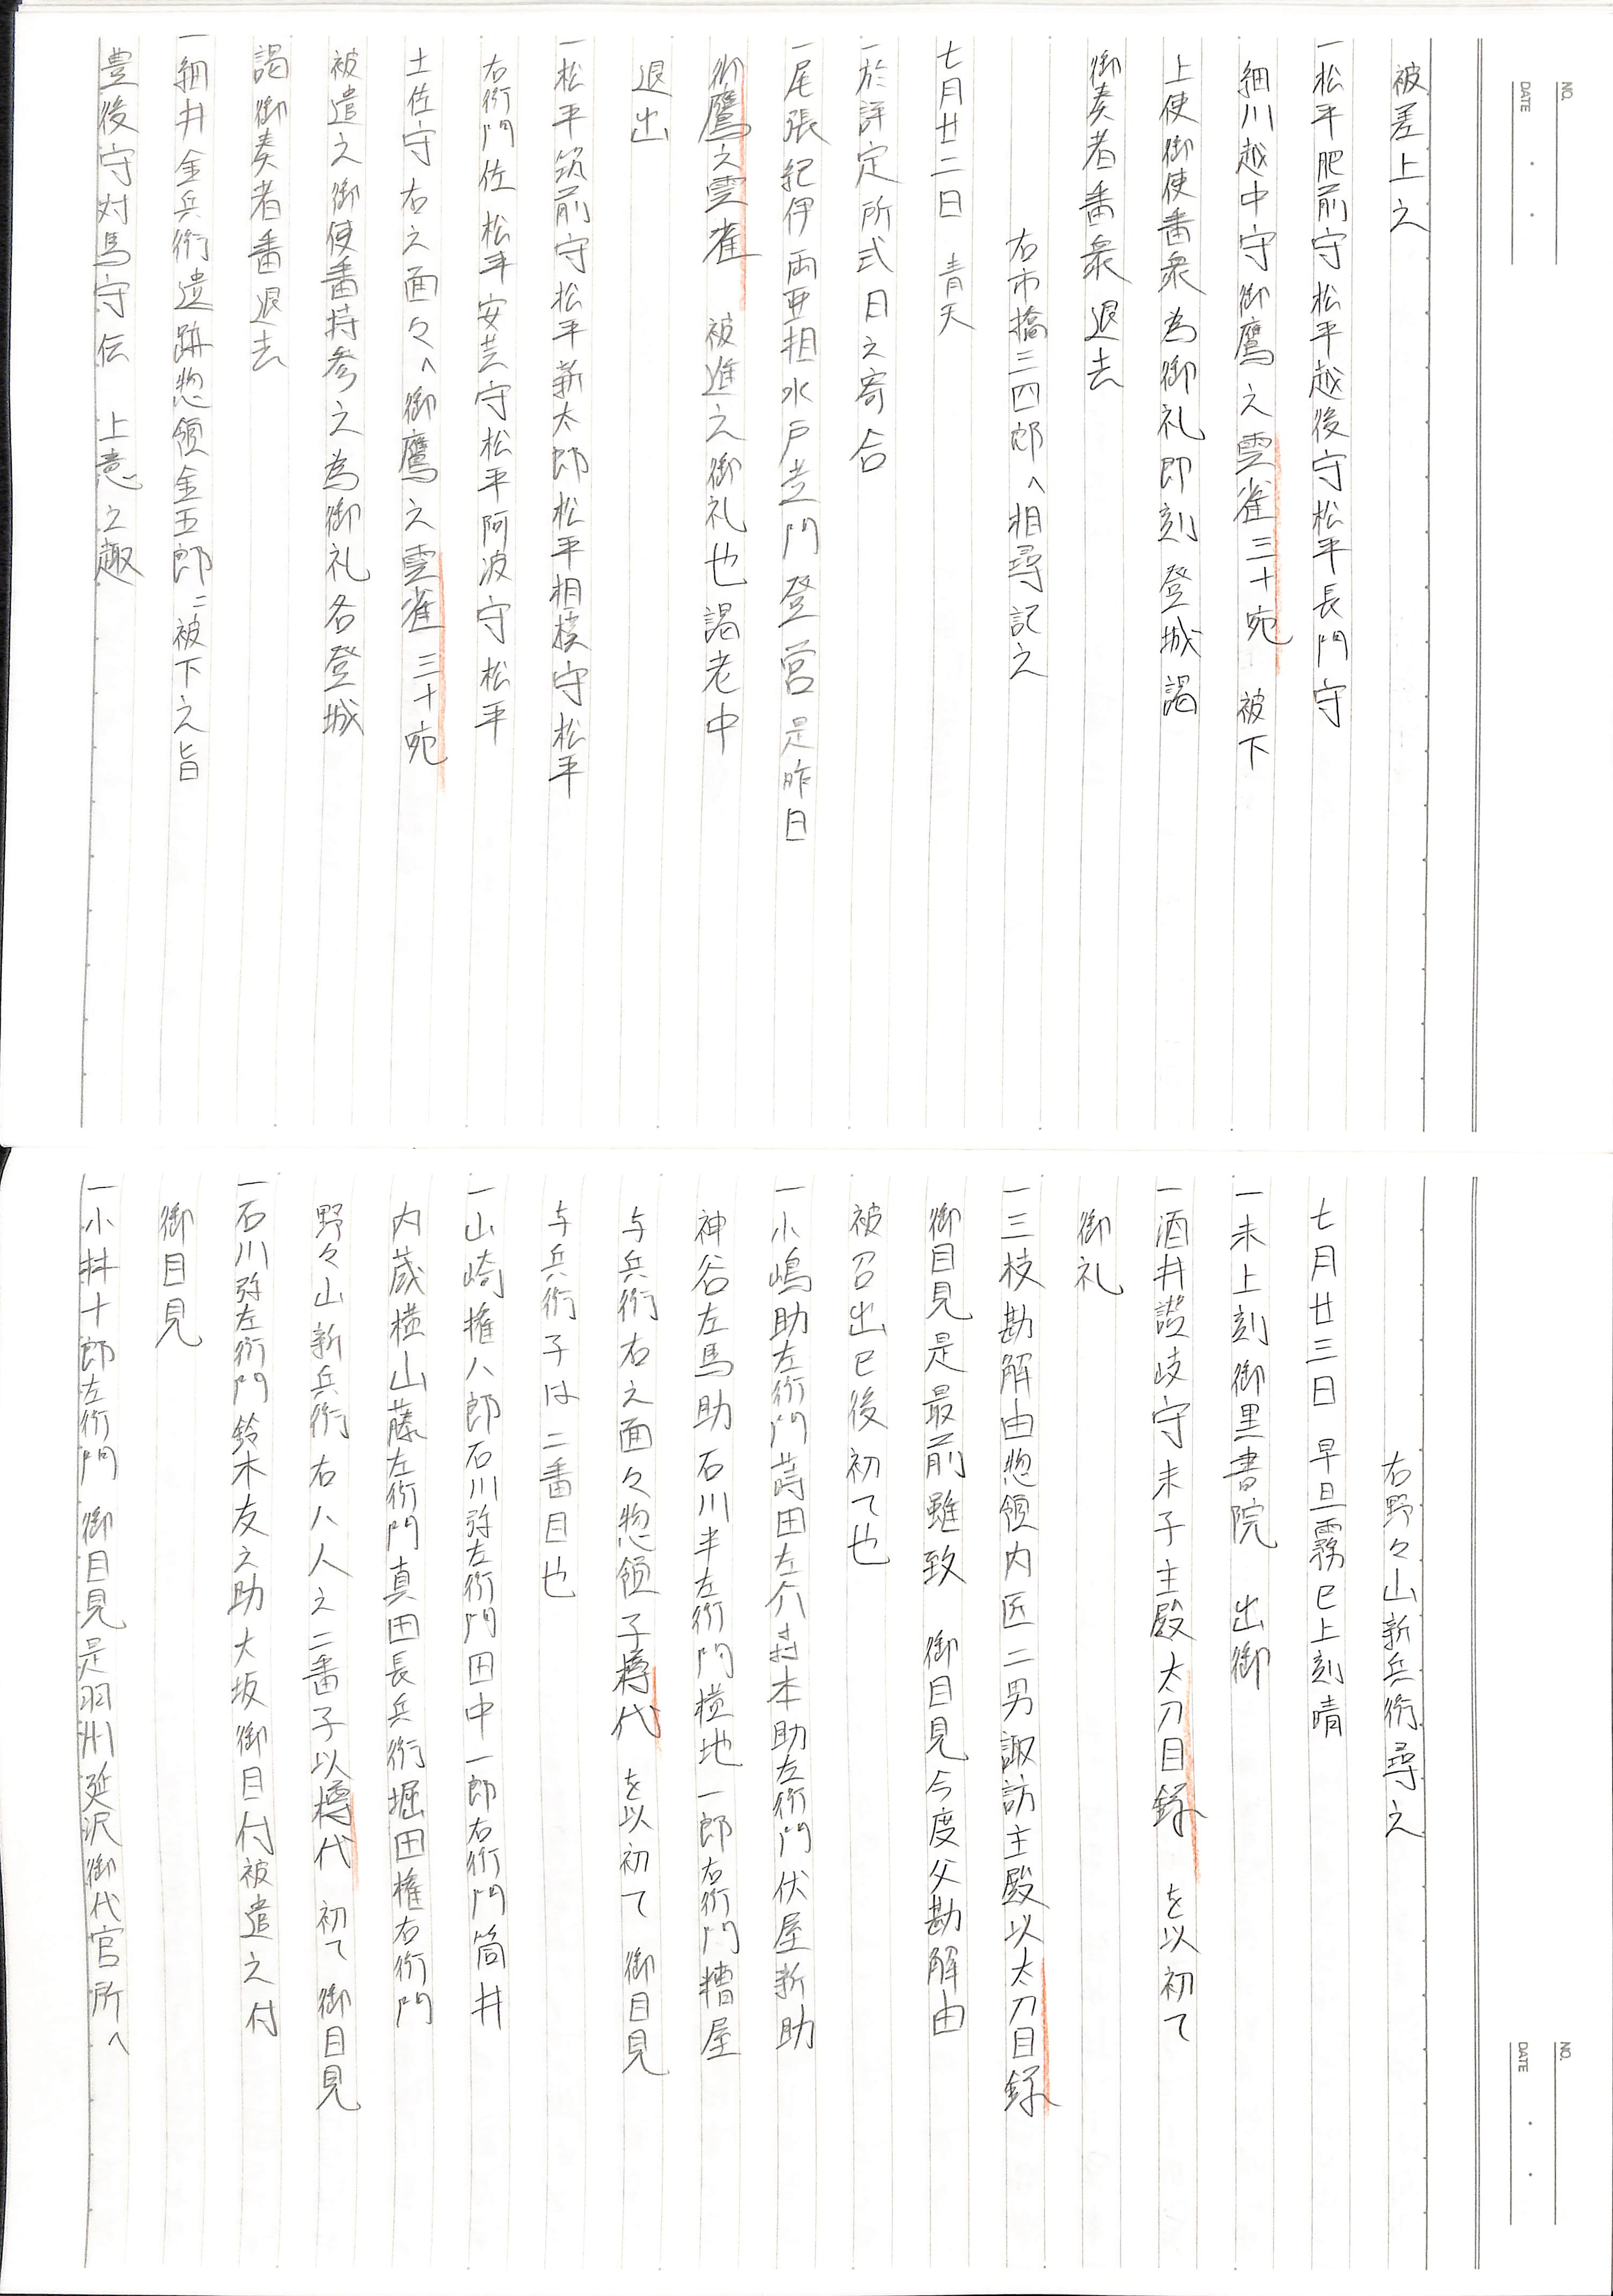 NO.
DATE
被差上之
一松平肥前守松平越後守松平長門守
細川越中守御鷹之雲雀三十宛 被下
上使御使番衆為御礼即刻登城謁
御奏者番衆退去
右市橋三四郎へ相尋記之
七月廿二日 青天
一於評定所式日之寄合
一尾張紀伊両亜相水戸黄門登営是昨日
御鷹之雲雀 被進之御礼也謁老中
退出
一松平筑前守松平新太郎松平相模守松平
右衛門佐松平安芸守松平阿波守松平
土佐守右之面々へ御鷹之雲雀三十宛
被遣之御使番持参之為御礼各登城
謁御奏者番退去
一細井金兵衛遺跡惣領金五郎ニ被下之旨
豊後守対馬守伝 上意之趣
NO.
DATE
右野々山新兵衛尋之
七月廿三日 早旦霧巳上刻晴
一未上刻御黒書院 出御
一酒井讃岐守末子主殿太刀目録 を以初て
御礼
一三枝勘解由惣領内匠二男諏訪主殿以太刀目録
御目見是最前雖致 御目見今度父勘解由
被召出已後初て也
一小嶋助左衛門蒔田左介村本助左衛門伏屋新助
神谷左馬助石川半左衛門横地一郎右衛門糟屋
与兵衛右之面々惣領子樽代 を以初て 御目見
与兵衛子は二番目也
一山崎権八郎石川弥左衛門田中一郎右衛門筒井
内蔵横山藤左衛門真田長兵衛堀田権右衛門
野々山新兵衛右八人之二番子以樽代 初て御目見
一石川弥左衛門鈴木友之助大坂御目付被遣之付
御目見
一小林十郎左衛門 御目見是羽州延沢御代官所へ